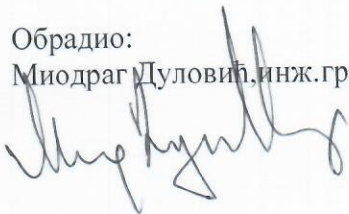 Обрадио:
Миодраг Дуловић,инж.гр